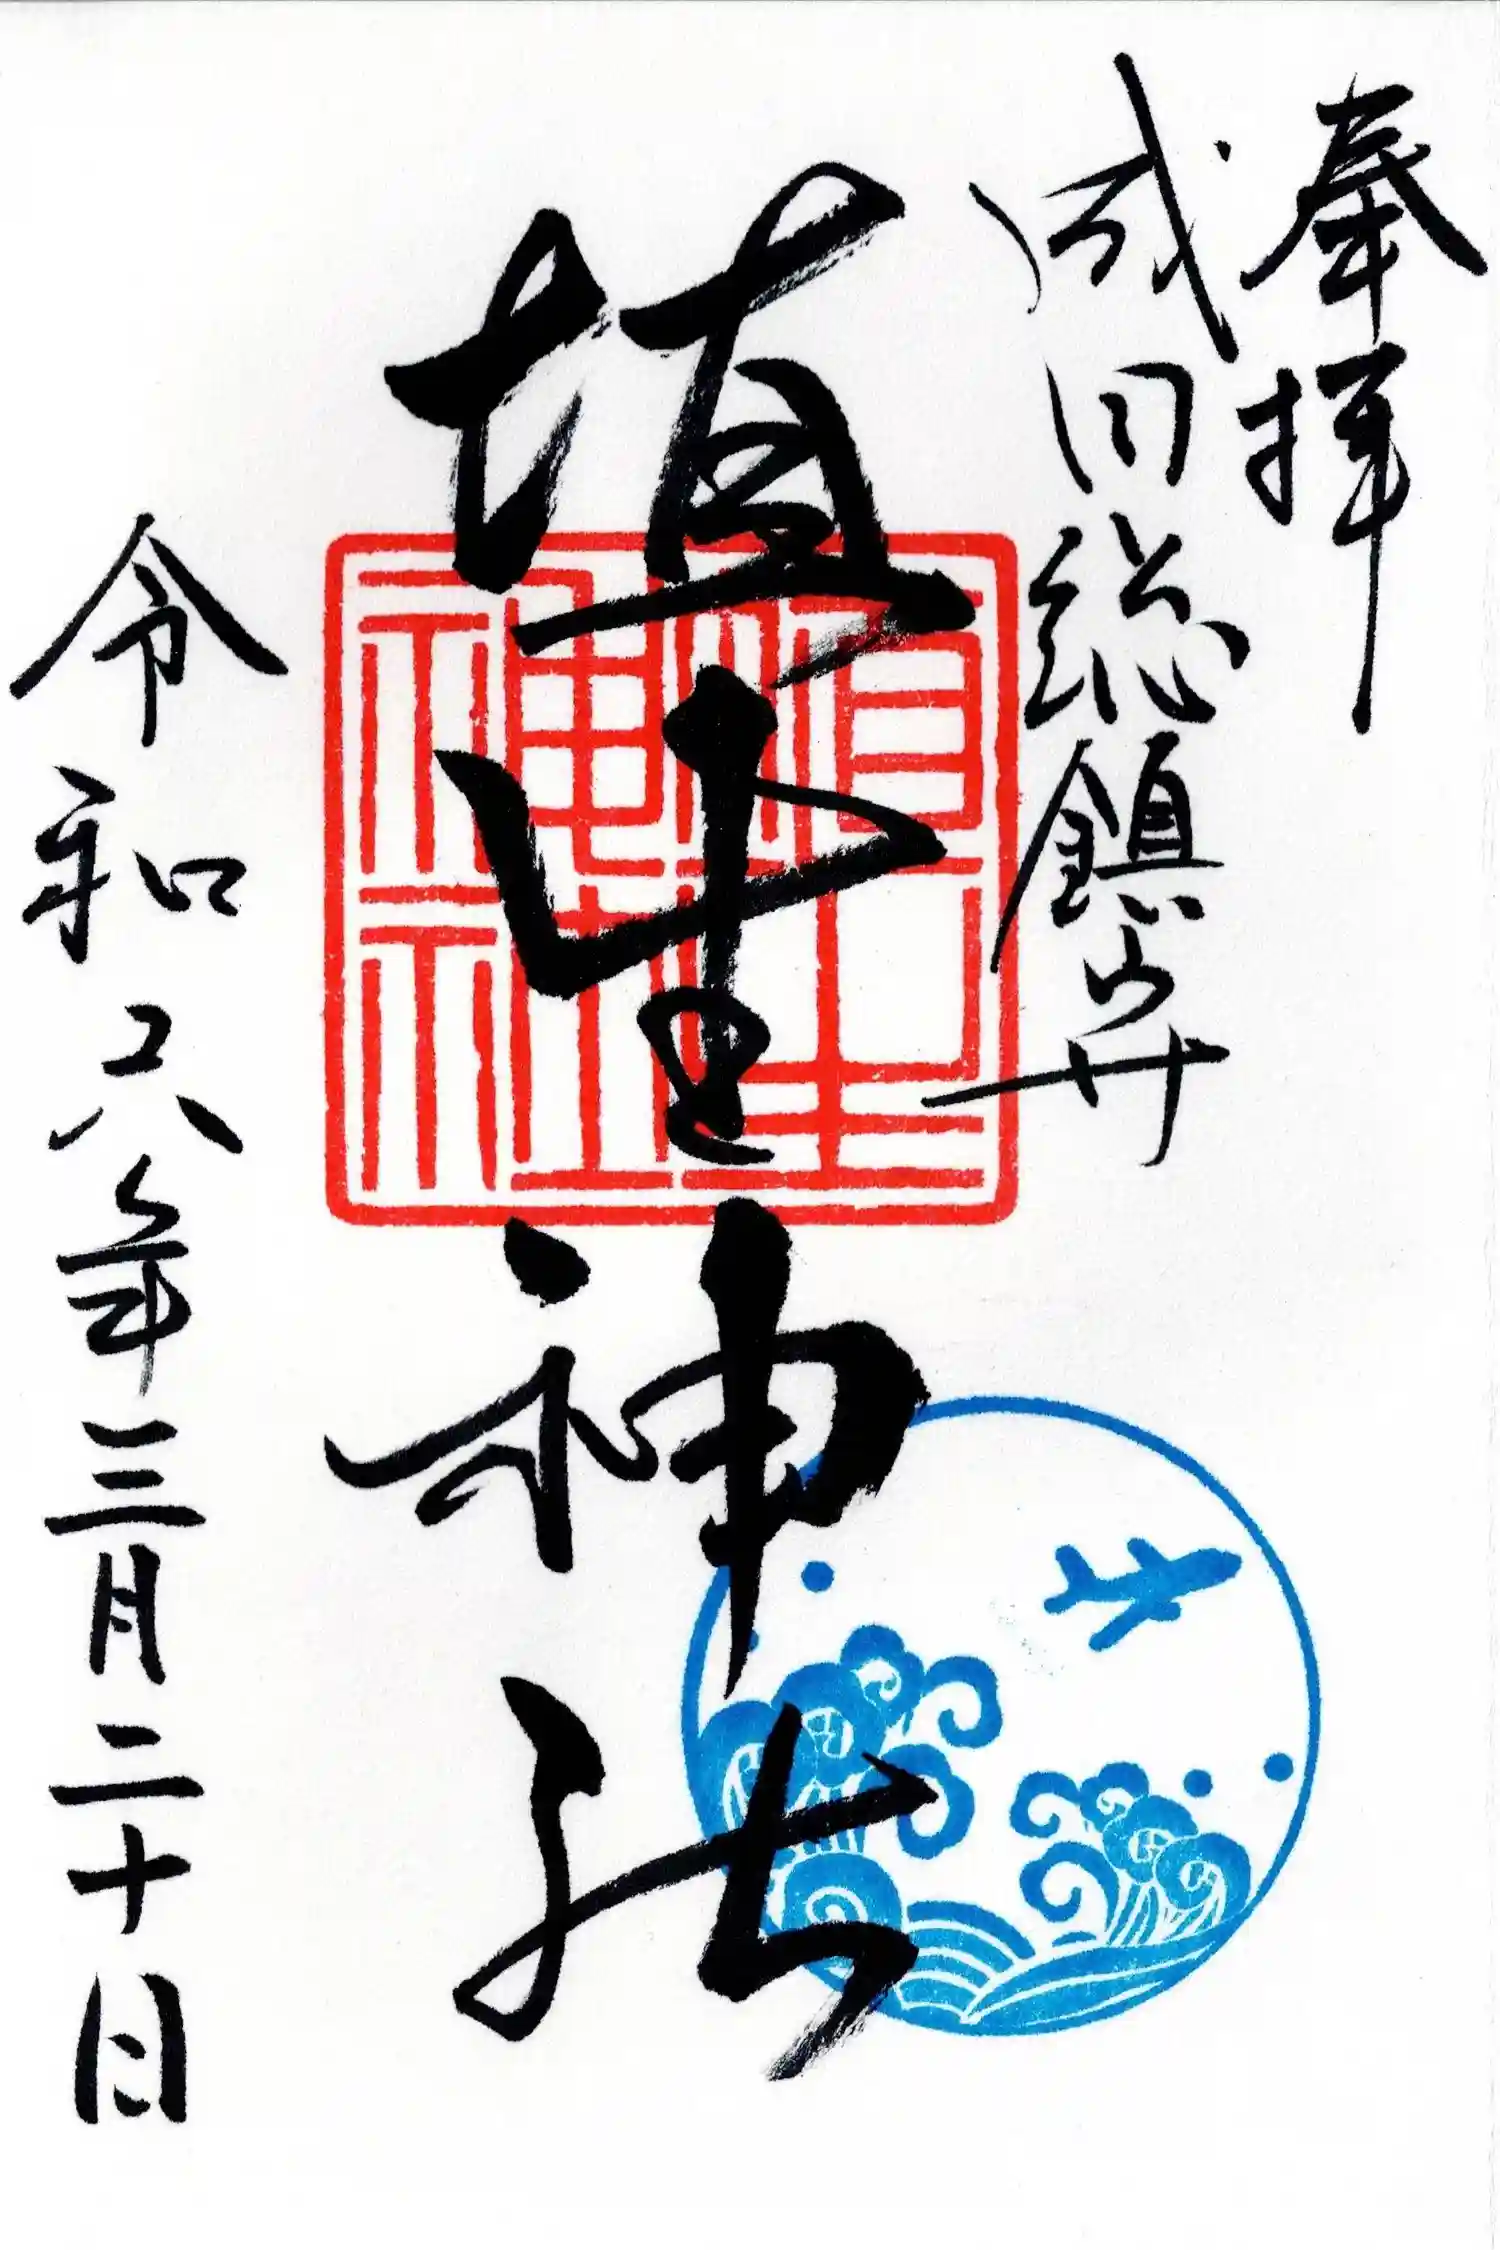 奉拝
成田総鎮守
埴生神社
埴生神社
令和六年三月二十日